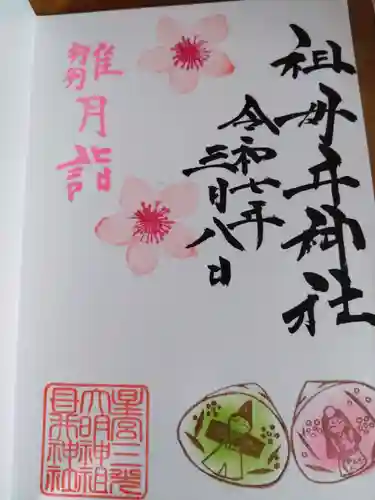 祖母井神社
令和七年
三月八日
雛月詣
星宮三
大明神祖
母井神社